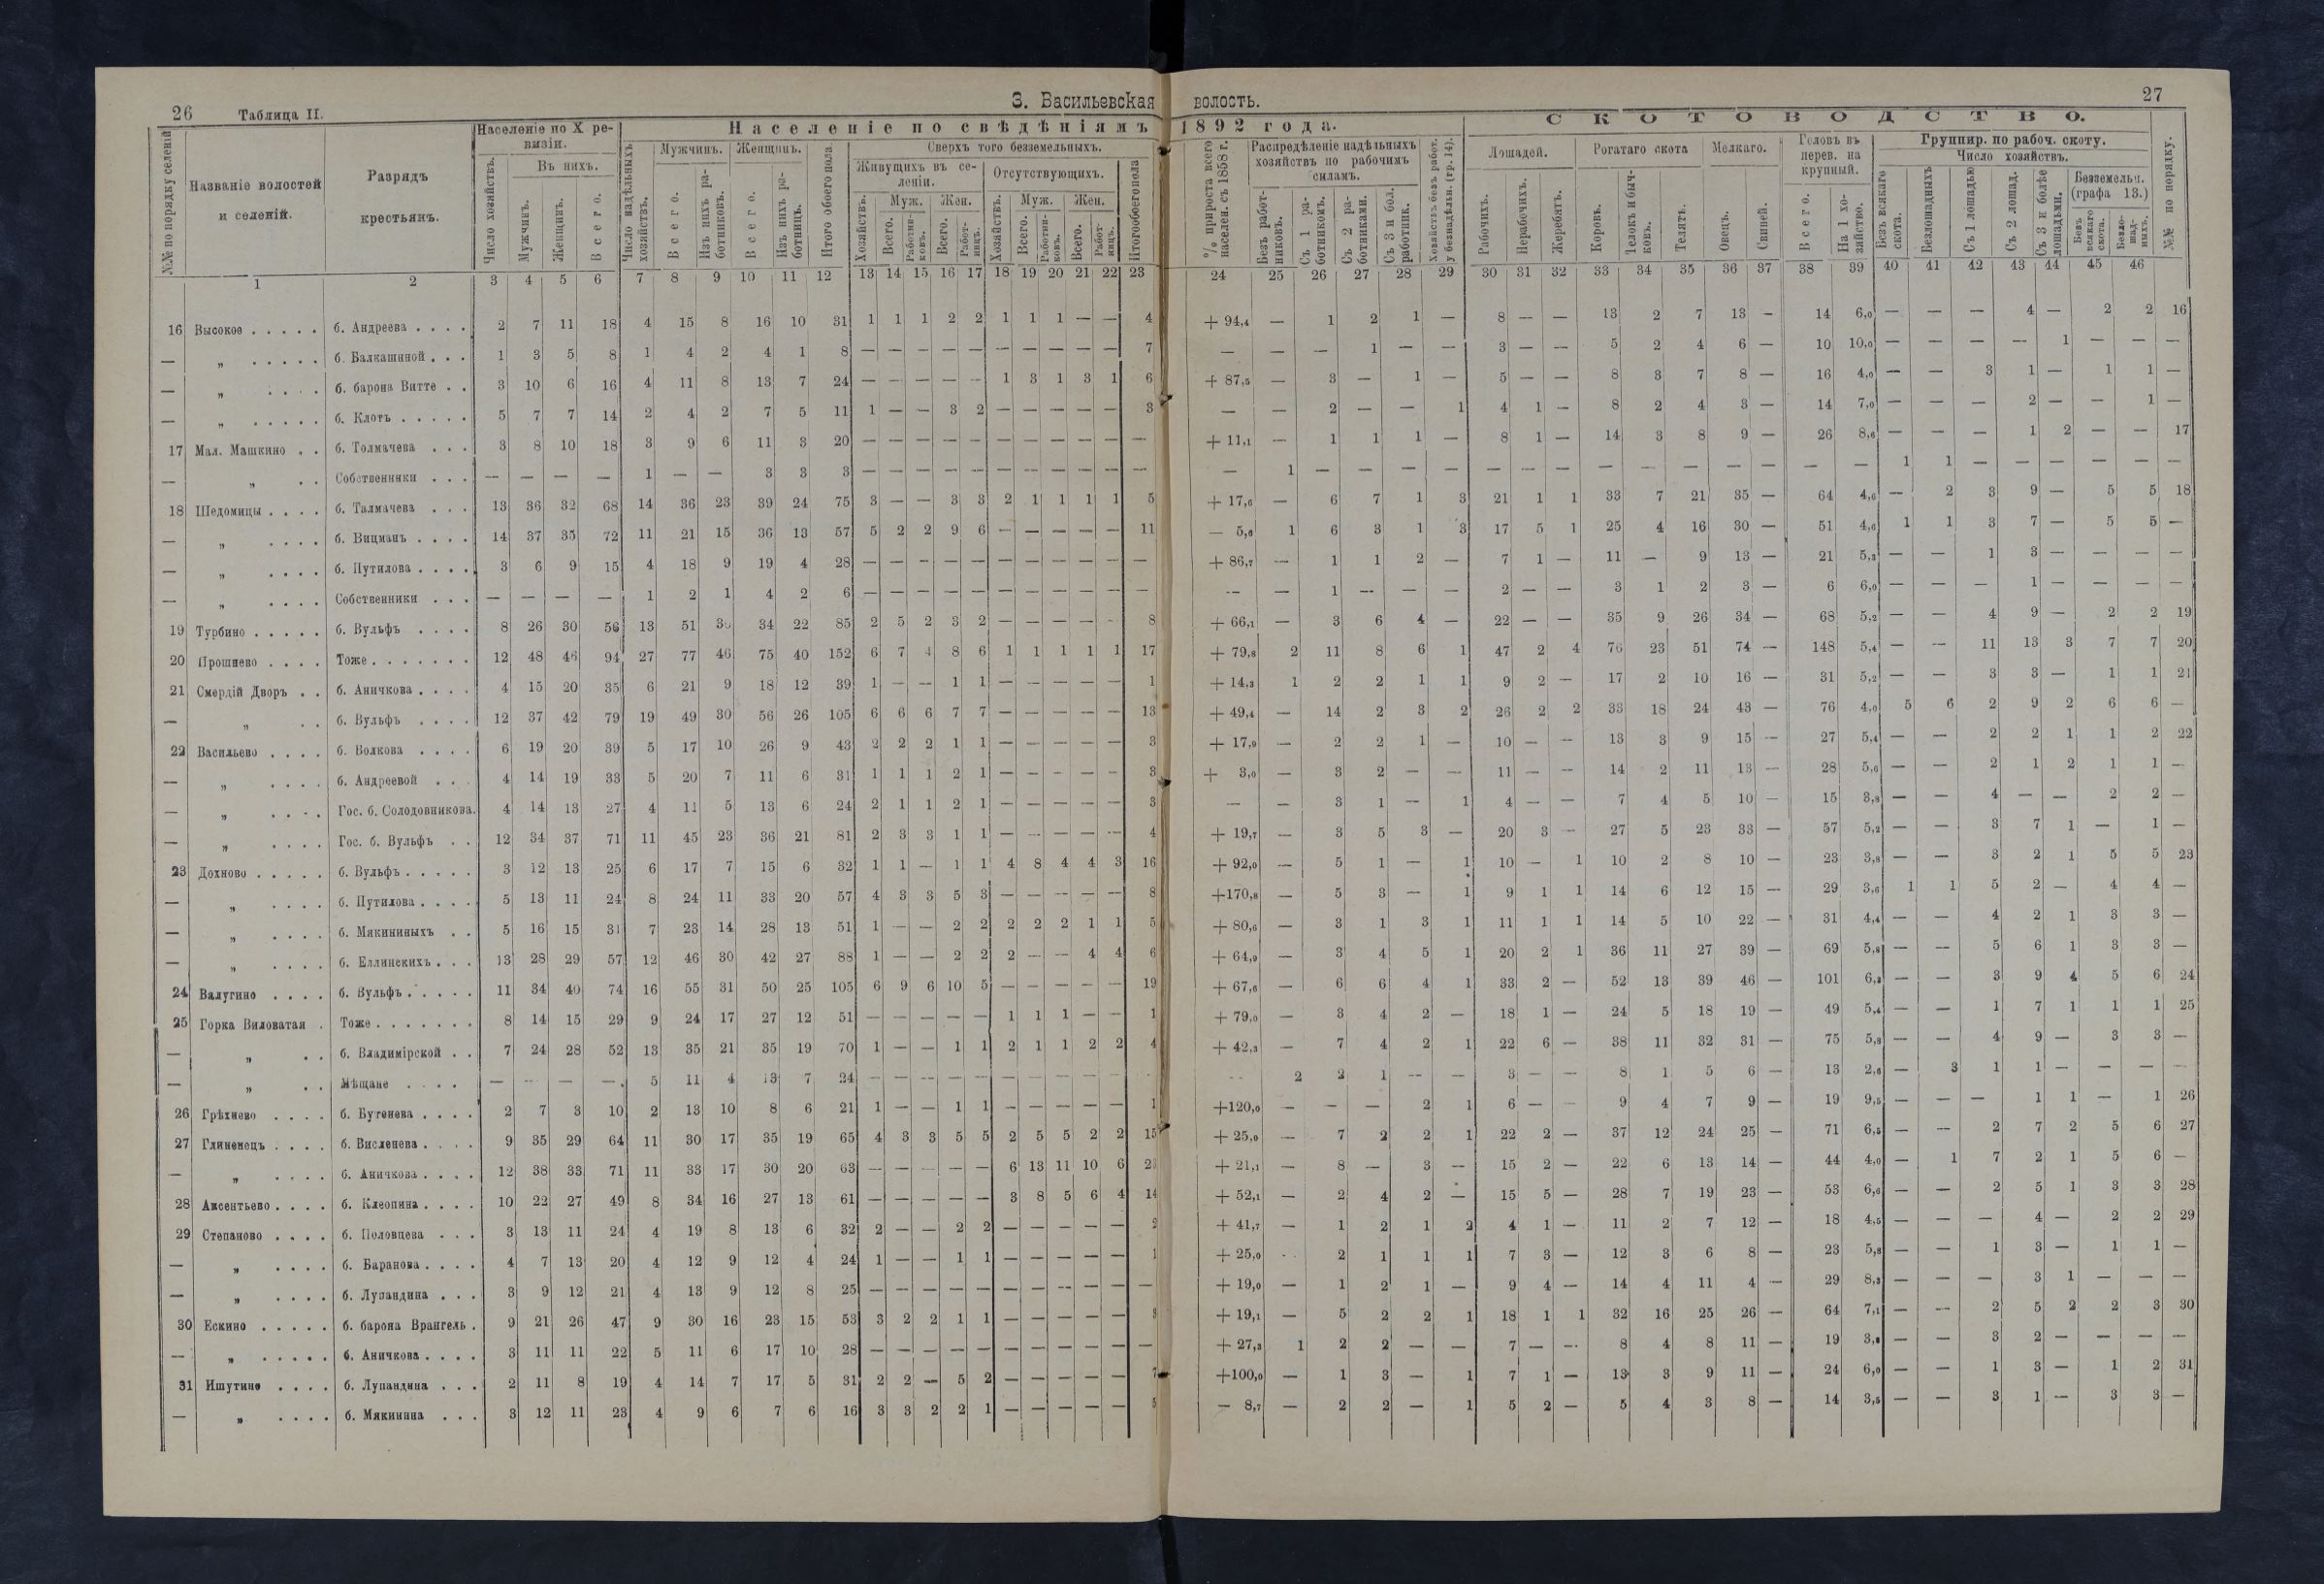 26 Таблица II.
3. Васильевская
Населеніе по X ревизіи.
Населеніе по свѣдѣніямъ
№№ по порядку селеній
Названіе волостей и селеній.
Разрядъ крестьянъ.
Число хозяйствъ.
Въ нихъ.
Мужчинъ.
Женщинъ.
Всего.
Число надѣльныхъ хозяйствъ.
Мужчинъ.
Всего.
Изъ нихъ работниковъ.
Женщинъ.
Всего.
Изъ нихъ работницъ.
Итого обоего пола
Сверхъ того безземельныхъ.
Живущихъ въ селеніи.
Хозяйствъ.
Муж.
Всего.
Работниковъ.
Жен.
Всего.
Работницъ.
Отсутствующихъ.
Хозяйствъ.
Муж.
Всего.
Работниковъ.
Жен.
Всего.
Работницъ.
Итого обоего пола
1 2 3 4 5 6 7 8 9 10 11 12 13 14 15 16 17 18 19 20 21 22 23
16 Высокое . . . . . б. Андреева . . . . 2 7 11 18 4 15 8 16 10 31 1 1 1 2 2 1 1 1 — — 4
— „ . . . . . б. Балкашиной . . . 1 3 5 8 1 4 2 4 1 8 — — — — — — — — — — 7
— „ . . . . б. барона Витте . . 3 10 6 16 4 11 8 13 7 24 — — — — — 1 3 1 3 1 6
— „ . . . . . б. Клотъ . . . . . 5 7 7 14 2 4 2 7 5 11 1 — — 3 2 — — — — — 3
17 Мал. Машкино . . б. Толмачева . . . 3 8 10 18 3 9 6 11 3 20 — — — — — — — — — — —
— „ . . Собственники . . . — — — — 1 — — 3 3 3 — — — — — — — — — — —
18 Шедомицы . . . . б. Талмачева . . . 13 36 32 68 14 36 23 39 24 75 3 — — 3 3 2 1 1 1 1 5
— „ . . . . б. Вицманъ . . . . 14 37 35 72 11 21 15 36 13 57 5 2 2 9 6 — — — — — 11
— „ . . . . б. Путилова . . . . 3 6 9 15 4 18 9 19 4 28 — — — — — — — — — — —
— „ . . . . Собственники . . . — — — — 1 2 1 4 2 6 — — — — — — — — — — —
19 Турбино . . . . . б. Вульфъ . . . . 8 26 30 56 13 51 34 22 85 2 5 2 3 2 — — — — — 8
20 Прошнево . . . . Тоже . . . . . . . 12 48 46 94 27 77 46 75 40 152 6 7 4 8 6 1 1 1 1 1 17
21 Смердій Дворъ . . б. Аничкова . . . . 4 15 20 35 6 21 9 18 12 39 1 — — 1 1 — — — — — 1
— „ . . б. Вульфъ . . . . 12 37 42 79 19 49 30 56 26 105 6 6 6 7 7 — — — — — 13
22 Васильево . . . . б. Волкова . . . . 6 19 20 39 5 17 10 26 9 43 2 2 2 1 1 — — — — — 3
— „ . . . . б. Андреевой . . . 4 14 19 33 5 20 7 11 6 31 1 1 1 2 1 — — — — — 3
— „ . . . . Гос. б. Солодовникова. 4 14 13 27 4 11 5 13 6 24 2 1 1 2 1 — — — — — 3
— „ . . . . Гос. б. Вульфъ . . 12 34 37 71 11 45 23 36 21 81 2 3 3 1 1 — — — — — 4
23 Дохново . . . . . б. Вульфъ . . . . . 3 12 13 25 6 17 7 15 6 32 1 1 — 1 1 4 8 4 4 3 16
— „ . . . . б. Путилова . . . . 5 13 11 24 8 24 11 33 20 57 4 3 3 5 3 — — — — — 8
— „ . . . . б. Мякининыхъ . . 5 16 15 31 7 23 14 28 13 51 1 — — 2 2 2 2 2 1 1 5
— „ . . . . б. Еллинскихъ . . . 13 28 29 57 12 46 30 42 27 88 1 — — 2 2 2 — — 4 4 6
24 Валугино . . . . б. Вульфъ . . . . . 11 34 40 74 16 55 31 50 25 105 6 9 6 10 5 — — — — — 19
25 Горка Виловатая . Тоже . . . . . . . 8 14 15 29 9 24 17 27 12 51 — — — — — 1 1 1 — — 1
— „ . . б. Владимірской . . 7 24 28 52 13 35 21 35 19 70 1 — — 1 1 2 1 1 2 2 4
— „ . . Мѣщане . . . . — — — — 5 11 4 13 7 24 — — — — — — — — — —
26 Грѣхнево . . . . б. Бутенева . . . . 2 7 3 10 2 13 10 8 6 21 1 — — 1 1 — — — — — 1
27 Глиненецъ . . . . б. Висленева . . . . 9 35 29 64 11 30 17 35 19 65 4 3 3 5 5 2 5 5 2 2 15
— „ . . . . б. Аничкова . . . . 12 38 33 71 11 33 17 30 20 63 — — — — — 6 13 11 10 6
28 Аксентьево . . . . б. Клеопина . . . . 10 22 27 49 8 34 16 27 13 61 — — — — — 3 8 5 6 4 14
29 Степаново . . . . б. Половцева . . . 3 13 11 24 4 19 8 13 6 32 2 — — 2 2 — — — — — 2
— „ . . . . б. Баранова . . . . 4 7 13 20 4 12 9 12 4 24 1 — — 1 1 — — — — — 1
— „ . . . . б. Лупандина . . . 3 9 12 21 4 13 9 12 8 25 — — — — — — — — — — —
30 Ескино . . . . . б. барона Врангель . 9 21 26 47 9 30 16 23 15 53 3 2 2 1 1 — — — — — 3
— „ . . . . . б. Аничкова . . . . 3 11 11 22 5 11 6 17 10 28 — — — — — — — — — — —
31 Ишутино . . . . б. Лупандина . . . 2 11 8 19 4 14 7 17 5 31 2 2 — 5 2 — — — — — 7
— „ . . . . б. Мякинина . . . 3 12 11 23 4 9 6 7 6 16 3 3 2 2 1 — — — — — 5
волость.
27
1892 года.
СКОТОВОДСТВО.
% прироста всего населен. съ 1858 г.
Распредѣленіе надѣльныхъ хозяйствъ по рабочимъ силамъ.
Безъ работниковъ.
Съ 1 работникомъ.
Съ 2 работниками.
Съ 3 и бол. работник.
Хозяйствъ безъ работ. у безнадѣльн. (гр. 14).
Лошадей.
Рабочихъ.
Нерабочихъ.
Жеребятъ.
Рогатаго скота
Коровъ.
Телокъ и бычковъ.
Телятъ.
Мелкаго.
Овецъ.
Свиней.
Головъ въ перев. на крупный.
Всего.
На 1 хозяйство.
Группир. по рабоч. скоту.
Число хозяйствъ.
Безъ всякаго скота.
Безлошадныхъ
Съ 1 лошадью
Съ 2 лошад.
Съ 3 и болѣе лошадьми.
Безземельн. (графа 13.)
Безъ всякаго скота.
Безлошадныхъ.
№№ по порядку.
24 25 26 27 28 29 30 31 32 33 34 35 36 37 38 39 40 41 42 43 44 45 46
+ 94,4 — 1 2 1 — 8 — — 13 2 7 13 — 14 6,0 — — — 4 — 2 2 16
— — — 1 — — 3 — — 5 2 4 6 — 10 10,0 — — — — 1 — — —
+ 87,5 — 3 — 1 — 5 — — 8 3 7 8 — 16 4,0 — — 3 1 — 1 1 —
— — 2 — — 1 4 1 — 8 2 4 3 — 14 7,0 — — — 2 — — 1 —
+ 11,1 — 1 1 1 — 8 1 — 14 3 8 9 — 26 8,6 — — — 1 2 — — 17
— 1 — — — — — — — — — — — — — — 1 1 — — — — — —
+ 17,6 — 6 7 1 3 21 1 1 33 7 21 35 — 64 4,6 — 2 3 9 — 5 5 18
— 5,6 1 6 3 1 3 17 5 1 25 4 16 30 — 51 4,6 1 1 3 7 — 5 5 —
+ 86,7 — 1 1 2 — 7 1 — 11 — 9 13 — 21 5,3 — — 1 3 — — — —
— — 1 — — — 2 — — 3 1 2 3 — 6 6,0 — — — 1 — — — —
+ 66,1 — 3 6 4 — 22 — — 35 9 26 34 — 68 5,2 — — 4 9 — 2 2 19
+ 79,8 2 11 8 6 1 47 2 4 76 23 51 74 — 148 5,4 — — 11 13 3 7 7 20
+ 14,3 1 2 2 1 1 9 2 — 17 2 10 16 — 31 5,2 — — 3 3 — 1 1 21
+ 49,4 — 14 2 3 2 26 2 2 33 18 24 43 — 76 4,0 5 6 2 9 2 6 6 —
+ 17,9 — 2 2 1 — 10 — — 13 3 9 15 — 27 5,4 — — 2 2 1 1 2 22
+ 3,0 — 3 2 — — 11 — — 14 2 11 13 — 28 5,6 — — 2 1 2 1 1 —
— — 3 1 — 1 4 — — 7 4 5 10 — 15 3,8 — — 4 — — 2 2 —
+ 19,7 — 3 5 3 — 20 3 — 27 5 23 33 — 57 5,2 — — 3 7 1 — 1 —
+ 92,0 — 5 1 — 1 10 — 1 10 2 8 10 — 23 3,8 — — 3 2 1 5 5 23
+170,8 — 5 3 — 1 9 1 1 14 6 12 15 — 29 3,6 1 1 5 2 — 4 4 —
+ 80,6 — 3 1 3 1 11 1 1 14 5 10 22 — 31 4,4 — — 4 2 1 3 3 —
+ 64,9 — 3 4 5 1 20 2 1 36 11 27 39 — 69 5,8 — — 5 6 1 3 3 —
+ 67,6 — 6 6 4 1 33 2 — 52 13 39 46 — 101 6,3 — — 3 9 4 5 6 24
+ 79,0 — 3 4 2 — 18 1 — 24 5 18 19 — 49 5,4 — — 1 7 1 1 1 25
+ 42,3 — 7 4 2 1 22 6 — 38 11 32 31 — 75 5,8 — — 4 9 — 3 3 —
— 2 2 1 — — 3 — — 8 1 5 6 — 13 2,6 — 3 1 1 — — — —
+120,0 — — — 2 1 6 — — 9 4 7 9 — 19 9,5 — — — 1 1 — 1 26
+ 25,0 — 7 2 2 1 22 2 — 37 12 24 25 — 71 6,5 — — 2 7 2 5 6 27
+ 21,1 — 8 — 3 — 15 2 — 22 6 13 14 — 44 4,0 — 1 7 2 1 5 6 —
+ 52,1 — 2 4 2 — 15 5 — 28 7 19 23 — 53 6,6 — — 2 5 1 3 3 28
+ 41,7 — 1 2 1 2 4 1 — 11 2 7 12 — 18 4,5 — — — 4 — 2 2 29
+ 25,0 — 2 1 1 1 7 3 — 12 3 6 8 — 23 5,8 — — 1 3 — 1 1 —
+ 19,0 — 1 2 1 — 9 4 — 14 4 11 4 — 29 8,3 — — — 3 1 — — —
+ 19,1 — 5 2 2 1 18 1 1 32 16 25 26 — 64 7,1 — — 2 5 2 2 3 30
+ 27,3 1 2 2 — — 7 — — 8 4 8 11 — 19 3,8 — — 3 2 — — — —
+100,0 — 1 3 — 1 7 1 — 13 3 9 11 — 24 6,0 — — 1 3 — 1 2 31
— 8,7 — 2 2 — 1 5 2 — 5 4 3 8 — 14 3,5 — — 3 1 — 3 3 —